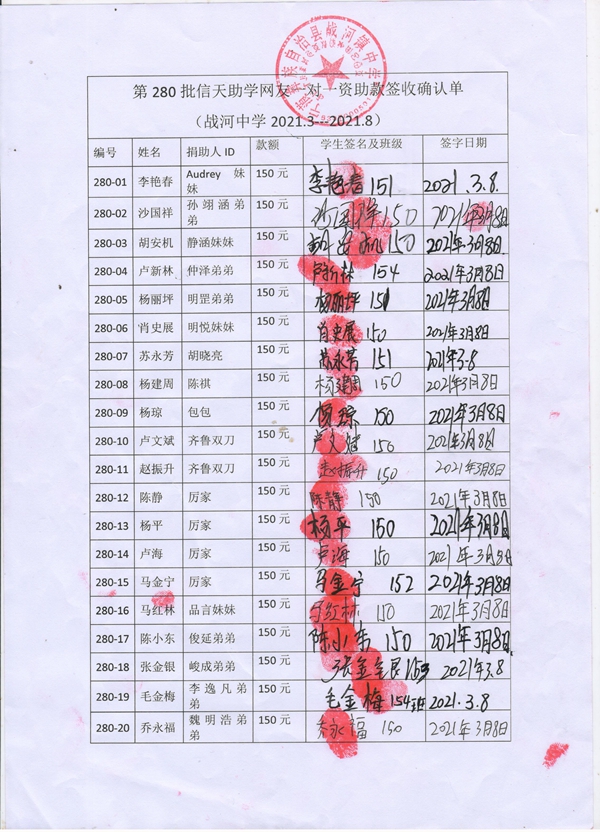 第 280 批信天助学网友一对一资助款签收确认单
（战河中学 2021.3---2021.8）
编号 姓名 捐助人 ID 款额 学生签名及班级 签字日期
280-01 李艳春 Audrey 妹妹 150 元 李艳春 151 2021.3.8.
280-02 沙国祥 孙翊涵弟弟 150 元 沙国祥 150 2021年3月8日
280-03 胡安机 静涵妹妹 150 元 胡安机 150 2021年3月8日
280-04 卢新林 仲泽弟弟 150 元 卢新林 154 2021年3月8日
280-05 杨丽坪 明罡弟弟 150 元 杨丽坪 151 2021年3月8日
280-06 肖史展 明悦妹妹 150 元 肖史展 150 2021年3月8日
280-07 苏永芳 胡晓亮 150 元 苏永芳 151 2021年3.8
280-08 杨建周 陈祺 150 元 杨建周 150 2021年3月8日
280-09 杨琼 包包 150 元 杨琼 150 2021年3月8日
280-10 卢文斌 齐鲁双刀 150 元 卢文斌 150 2021年3月8日
280-11 赵振升 齐鲁双刀 150 元 赵振升 150 2021年3月8日
280-12 陈静 厉家 150 元 陈静 150 2021年3月8日
280-13 杨平 厉家 150 元 杨平 150 2021年3月8日
280-14 卢海 厉家 150 元 卢海 150 2021年3月8日
280-15 马金宁 厉家 150 元 马金宁 152 2021年3月8日
280-16 马红林 品言妹妹 150 元 马红林 150 2021年3月8日
280-17 陈小东 俊延弟弟 150 元 陈小东 150 2021年3月8日
280-18 张金银 峻成弟弟 150 元 张金银 153 2021年3.8
280-19 毛金梅 李逸凡弟弟 150 元 毛金梅 154班 2021.3.8
280-20 乔永福 魏明浩弟弟 150 元 乔永福 150 2021年3月8日